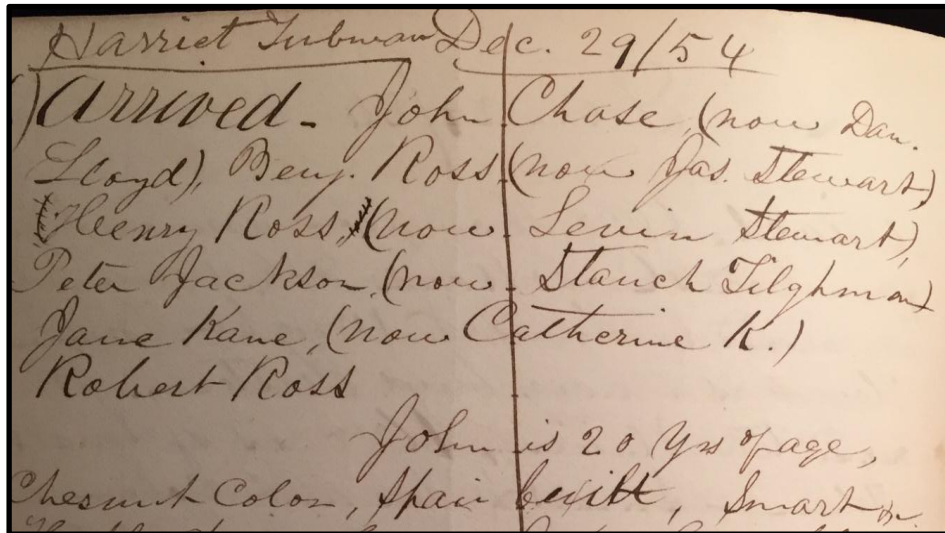 Harriet Tubman Dec. 29/54
Arrived - John Chase, (now Dan.
Lloyd), Benj. Ross (now Jas. Stewart)
Henry Ross, (now Levin Stewart),
Peter Jackson, (now Stauch Tilghman)
Jane Kane, (now Catherine K.)
Robert Ross
John is 20 yrs of age,
Chesnut Color, Spair built, Smart